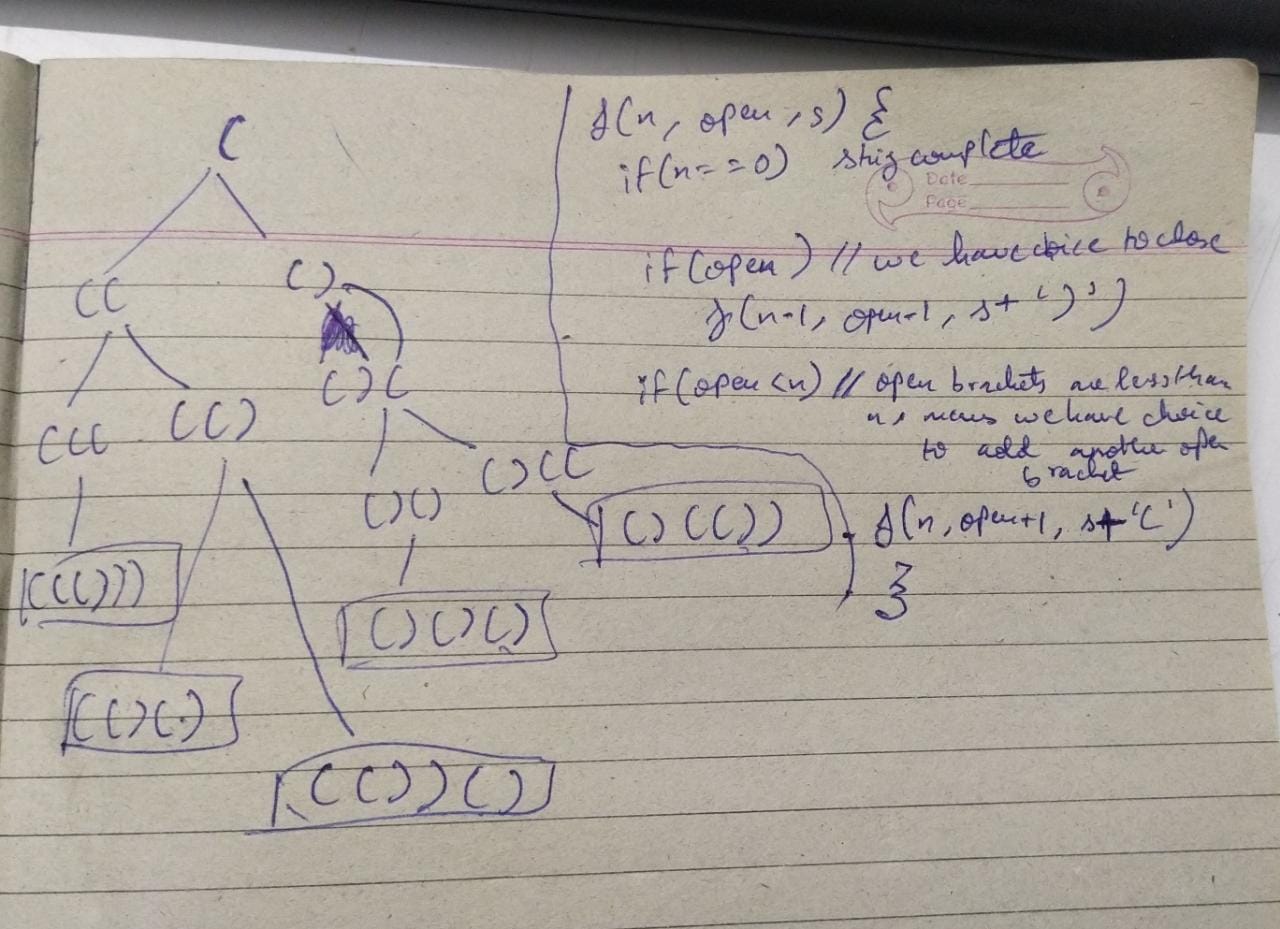 (
((
()
(((
(()
()(
()()
()((
((()))
()()()
()(())
(()()
(())()
f(n, open, s) {
if(n==0) string complete
Date
Page
if(open) // we have choice to close
f(n-1, open-1, s+ ')')
if(open<n) // open brackets are less than
n, means we have choice
to add another open
bracket
f(n, open+1, s+'(')
}